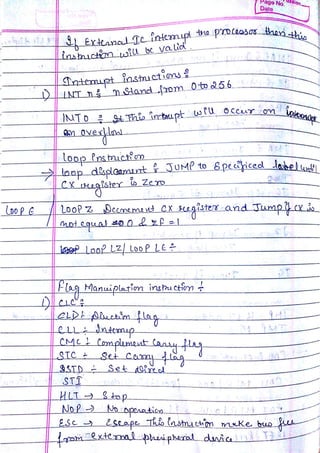 Page No.
Date
If External Ic interrupt the processor then this
instruction will be valid
Interrupt instructions :
1) INT n : n stand from 0 to 256
INTO : This intrupt will occur on interrupt
an overflow
loop instruction
→ loop displacment : JUMP to Specificed label until
CX register is zero
LOOP E / LOOP Z Decrement CX register and Jump if CX is
not equal to 0 & ZF = 1
LOOP LZ / LOOP LE :-
Flag Manuiplation instruction ÷
1) CLC ÷
CLD : Direction flag
CLI : Interrup
CMC : Complement Carry flag
STC ÷ Set Carry flag
STD ÷ Set Direct
STI
HLT → Stop
NOP → No operation
ESC → Escape This Instruction make bus free
from external pheripheral device